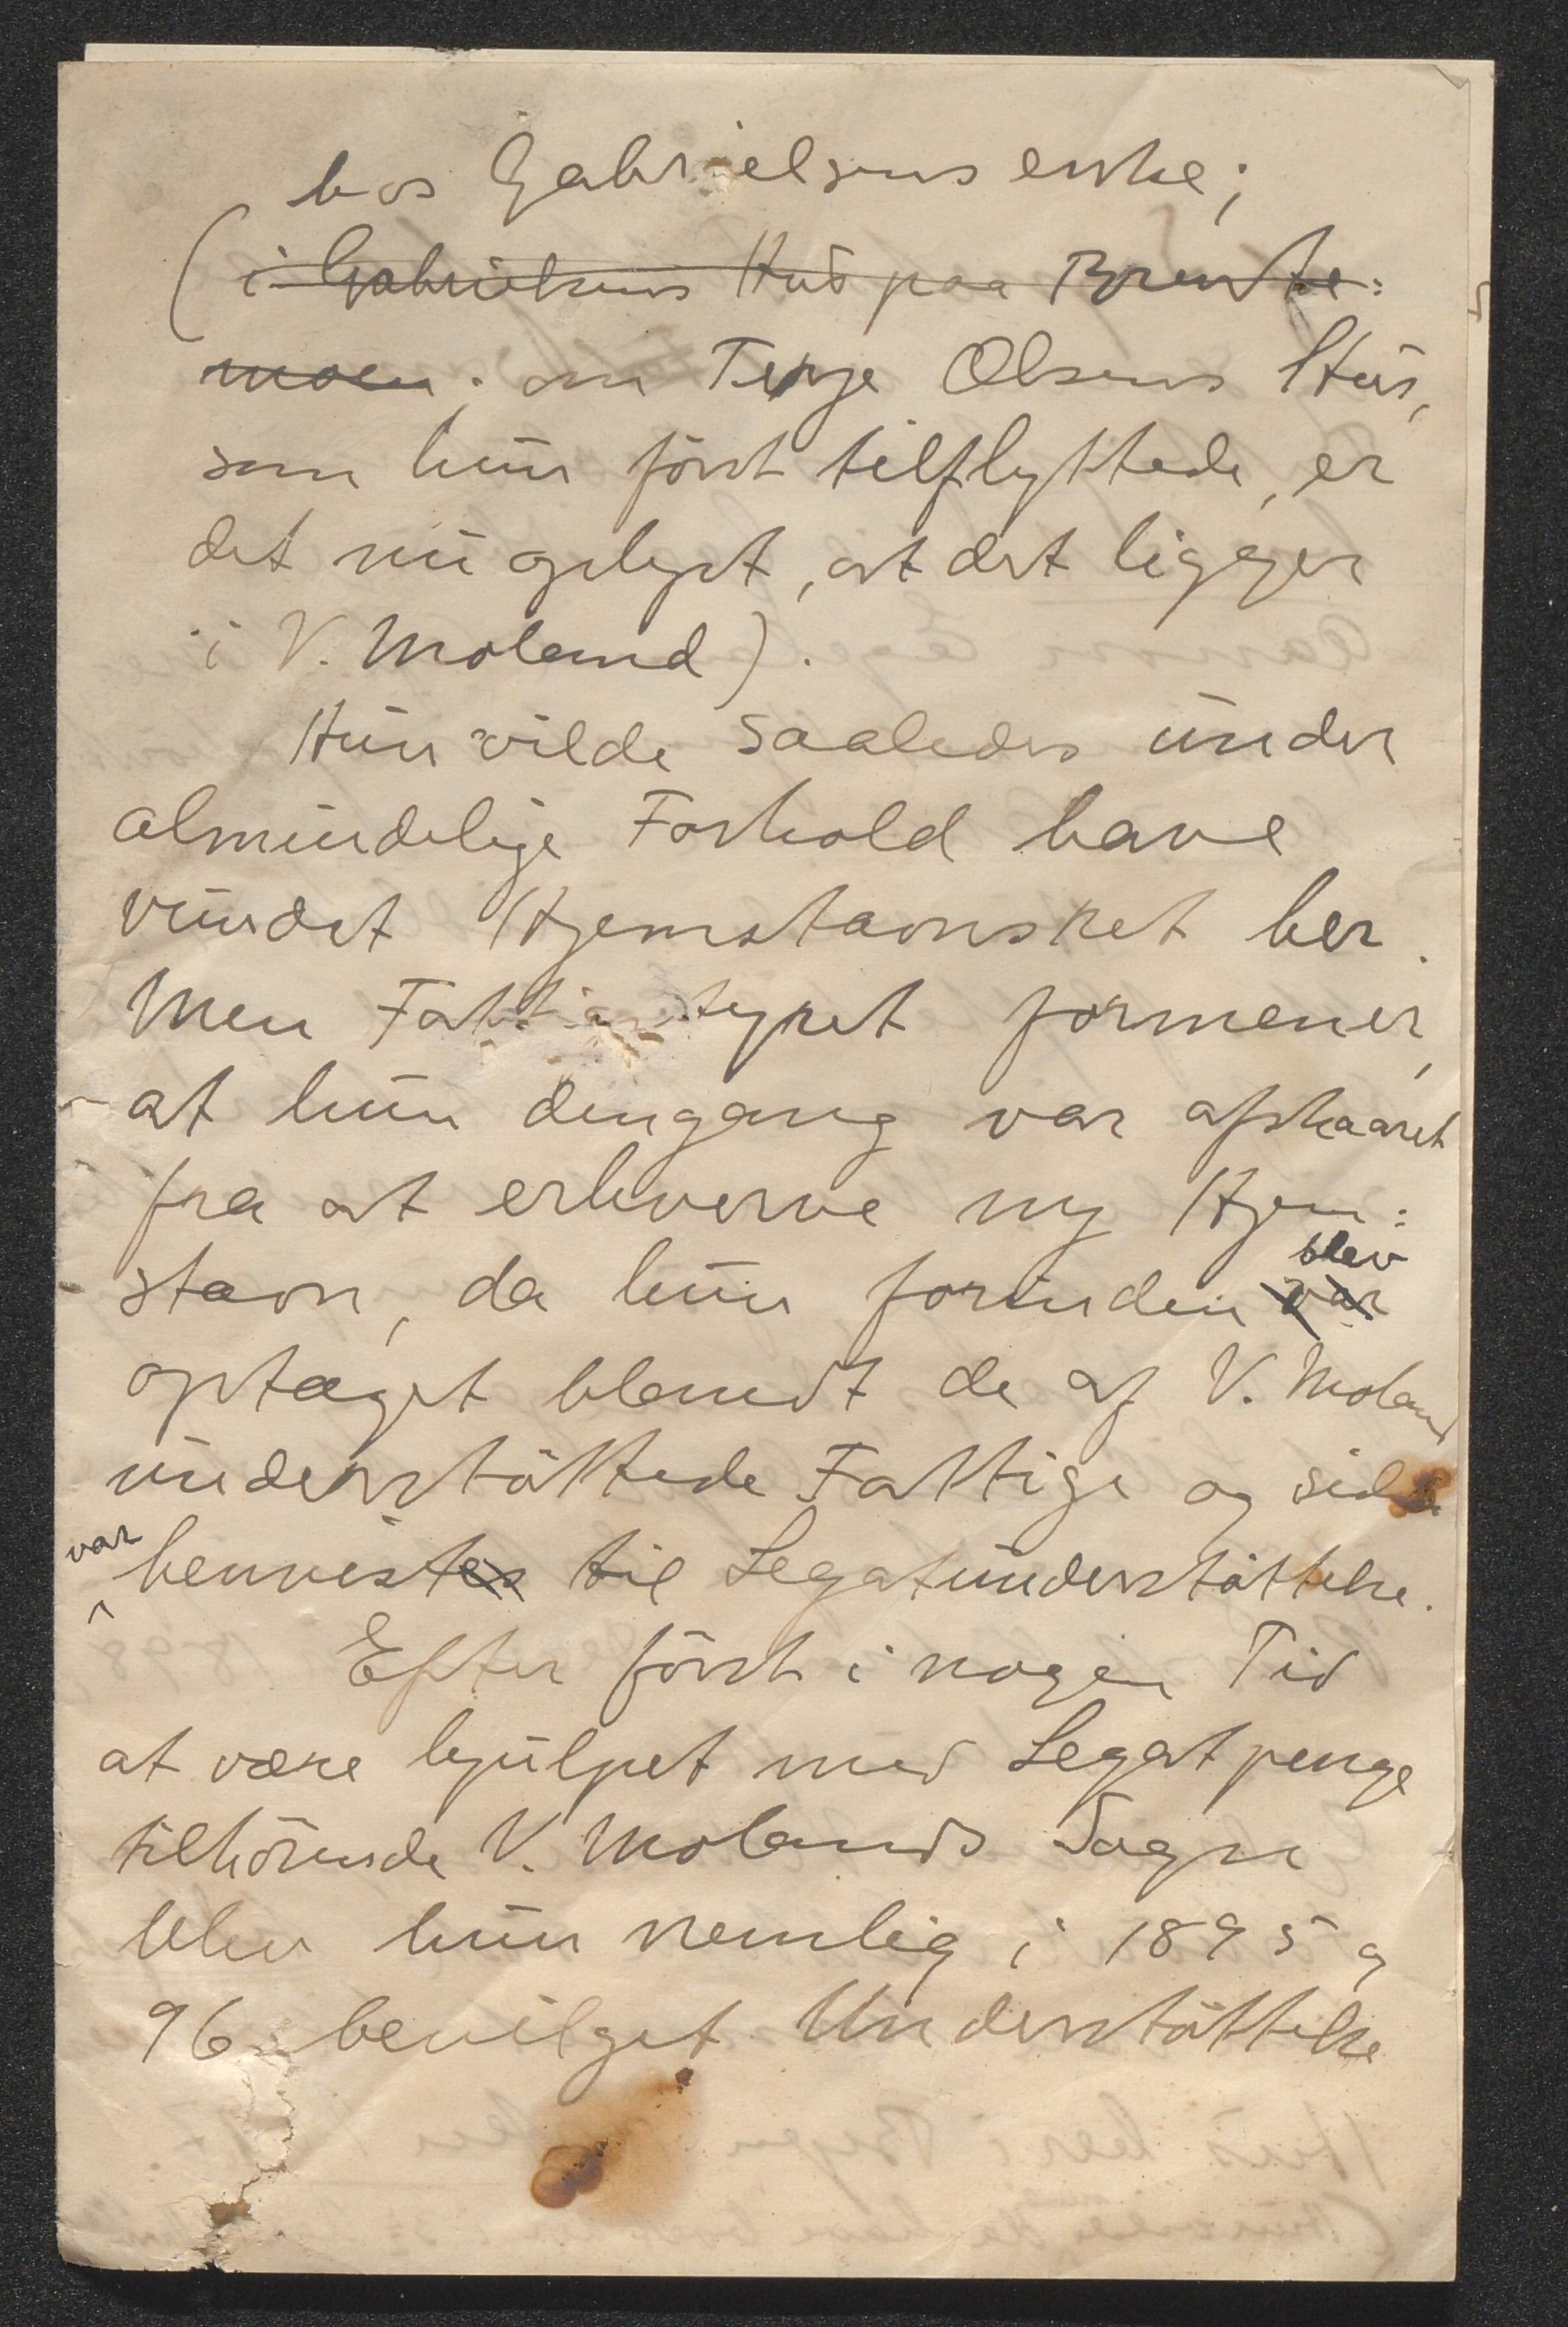 hos Gabrielsens enke;
(i Gabrielsens Hus paa Brente=
moen; om Terje Olsens Hus,
som hun först tilflyttede, er
det nu oplyst, at det ligger
i V. Moland).
Hun vilde saaledes under
almindelige Forhold have
vundet Hjemstavnsret her.
Men Fattigstyret formener,
at hun dengang var afskaaret
fra at erhverve ny Hjem=
stavn, da hun forinden var blev
optaget blandt de af V. Moland
understöttede Fattige og siden
var henvistes til Legatunderstöttelse.
Efter först i nogen Tid
at være hjulpet med Legatpenge
tilhörende V. Molands Sogn
blev hun nemlig i 1895 og
96 bevilget Understöttelse